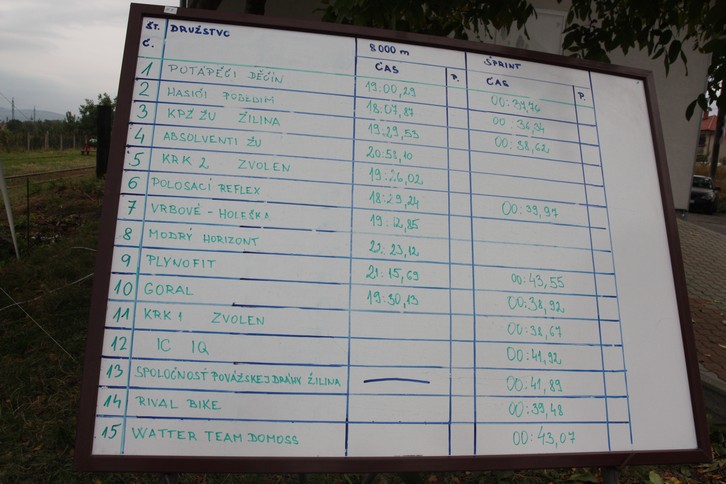 ŠT. Č. DRUŽSTVO 8000 m ŠPRINT
ČAS P. ČAS P.
1 POTÁPĚČI DĚČÍN 19:00,29 00:37,76
2 HASIČI PODEDIM 18:07,87 00:36,34
3 KPŽ ŽU ŽILINA 19:29,53 00:38,62
4 ABSOLVENTI ŽU 20:58,10
5 KRK 2 ZVOLEN 19:26,02
6 POLOSACI REFLEX 18:29,24 00:39,97
7 VRBOVÉ - HOLEŠKA 19:12,85
8 MODRÝ HORIZONT 22:23,12
9 PLYNOFIT 21:15,69 00:43,55
10 GORAL 19:30,13 00:38,92
11 KRK 1 ZVOLEN 00:38,67
12 IC IQ 00:41,92
13 SPOLOČNOSŤ POVÁŽSKEJ DRÁHY ŽILINA 00:41,89
14 RIVAL BIKE 00:39,48
15 WATTER TEAM DOMOSS 00:43,07